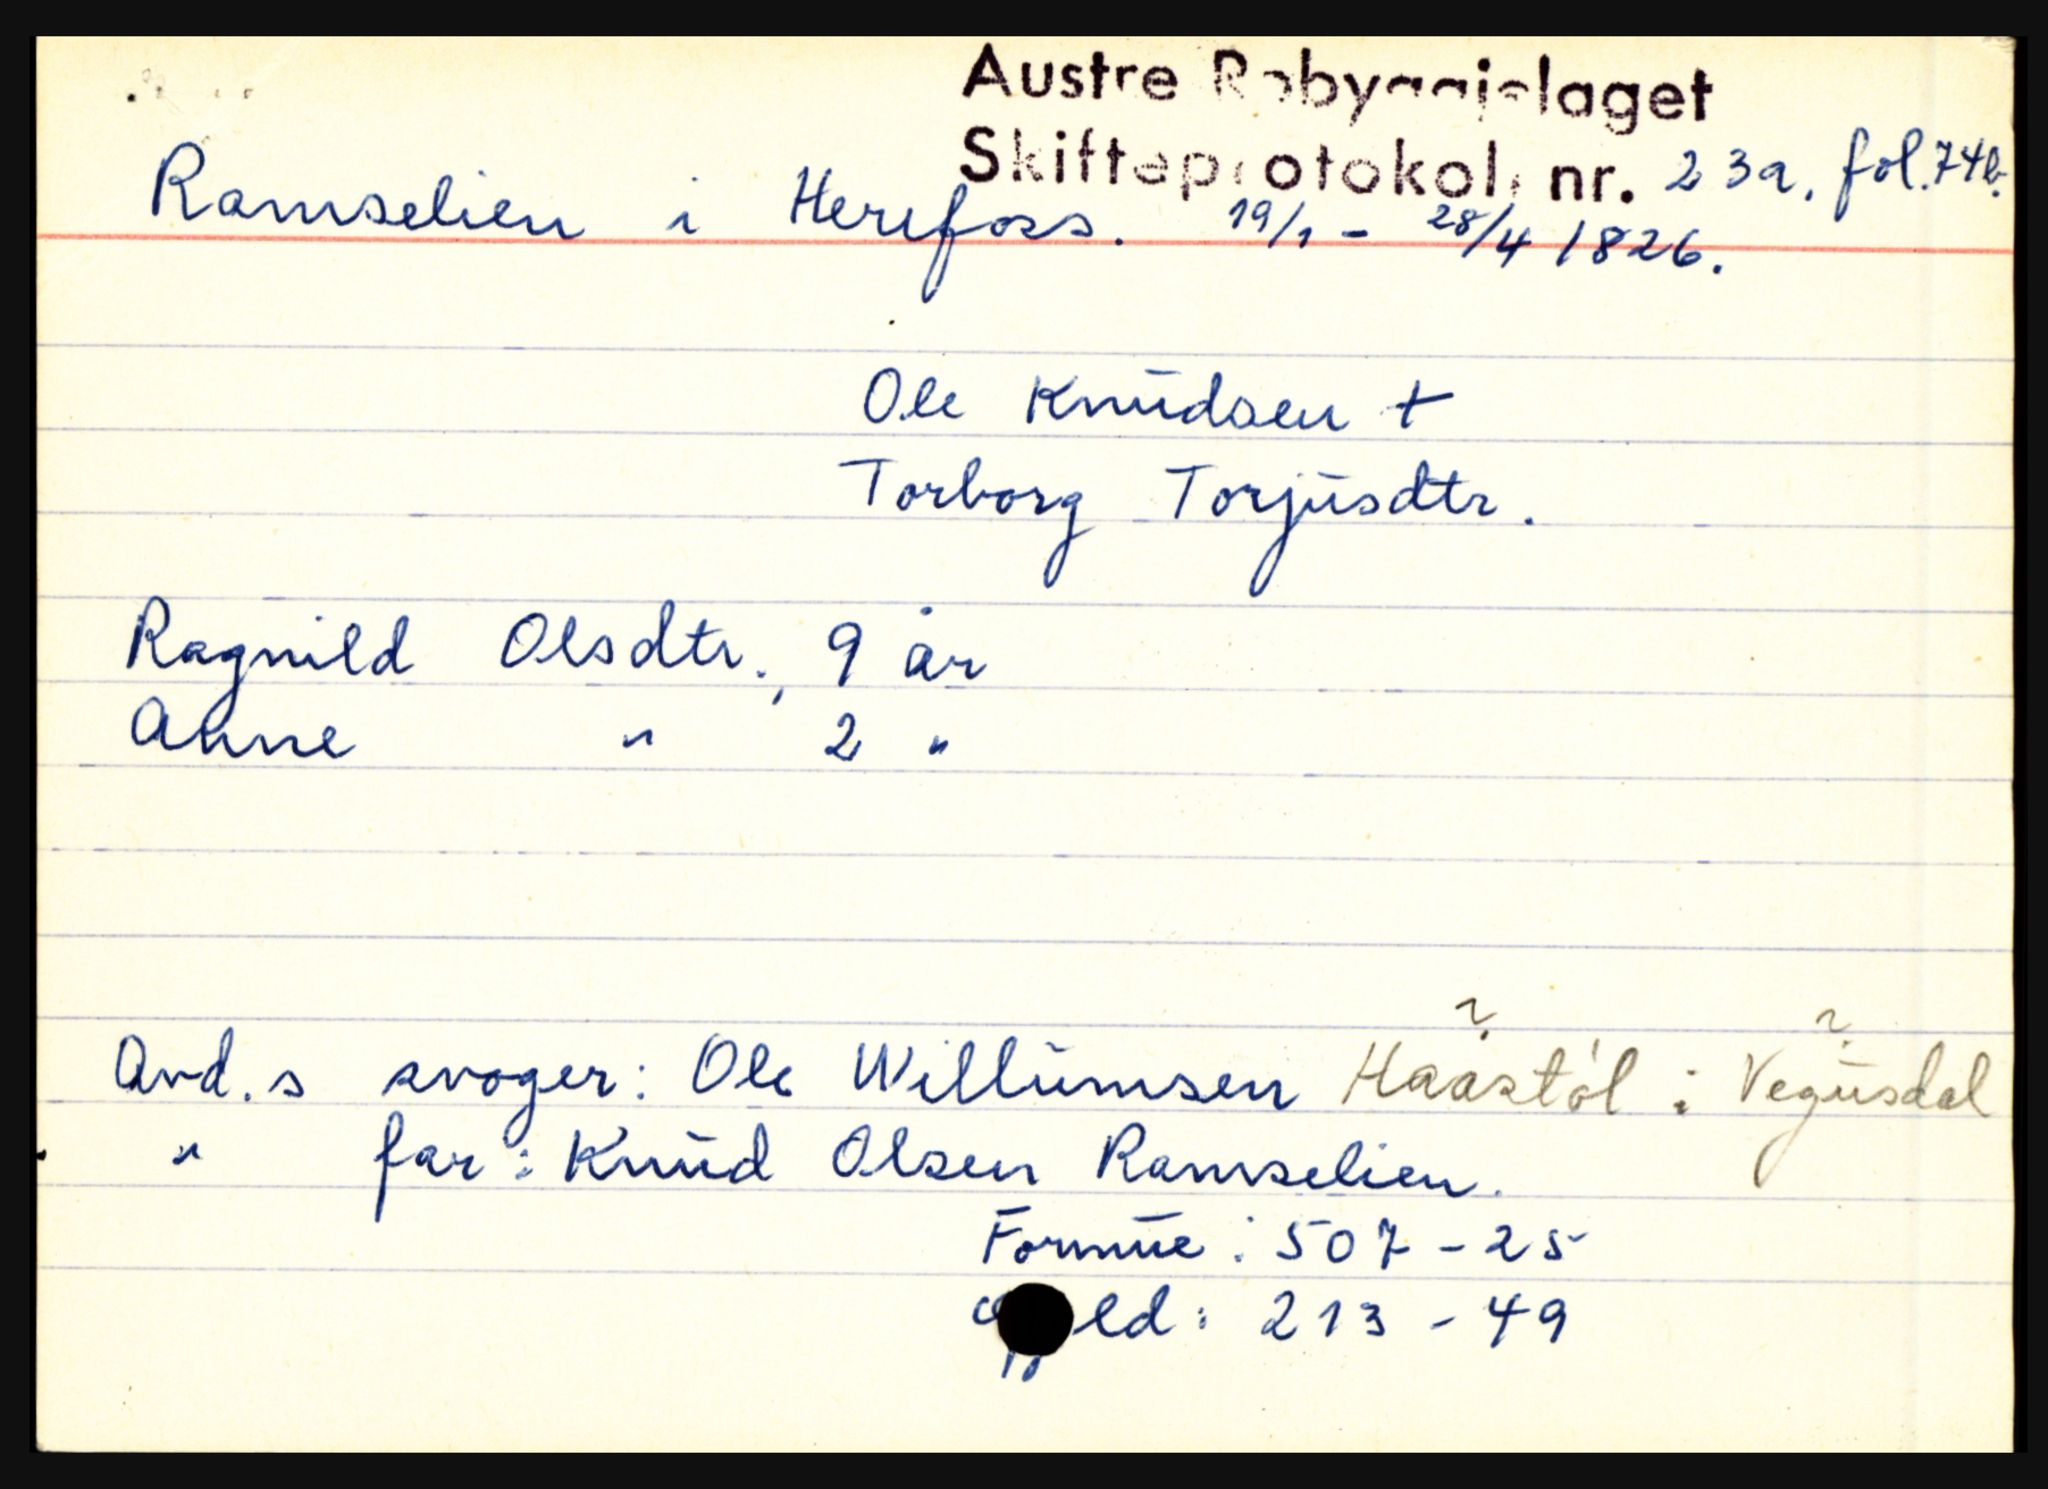 Austre Robyggjelaget
Skifteprotokoll nr. 23a, fol. 74b.
Ramselien i Herefoss. 19/1 - 28/4 1826.
Ole Knudsen +
Torborg Torjusdtr.
Ragnild Olsdtr., 9 år
Anne " 2 "
Avd. s svoger: Ole Willumsen Haastøl i Vegusdal
? ?
" far: Knud Olsen Ramselien.
Formue: 507 - 25
Gjeld: 213 - 49